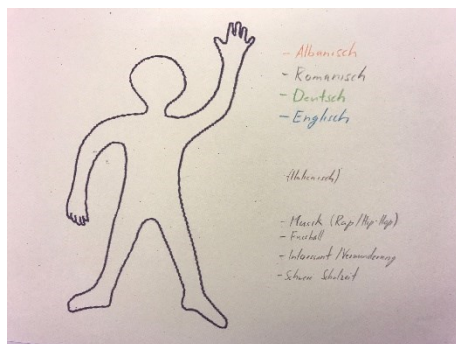 - Albanisch
- Romanisch
- Deutsch
- Englisch
(Italienisch)
- Musik (Rap/Hip-Hop)
- Fussball
- Interessant /Verwunderung
- Schwere Schulzeit